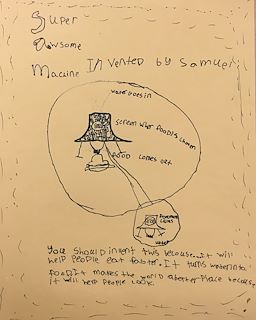 Super
Awsome
Machine Invented by Samuel
water goes in
screen wher food is chosen
food comes out
water
You should invent this because. It will
help people eat faster. It turns water into
food. It makes the world a better place because
it will help people cook.